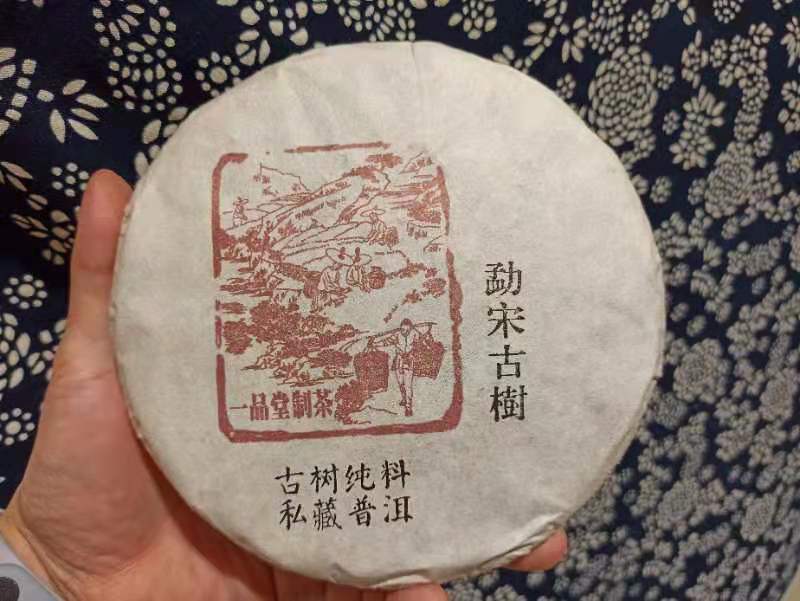 勐宋古樹
一品堂制茶
古树纯料
私藏普洱